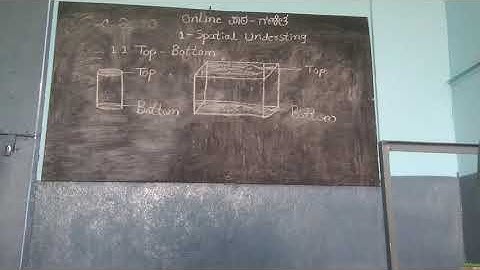 Online ಪಾಠ - ಗಣಿತ
1 - Spatial Understing
1.1 Top - Bottom
Top
Top
Bottom
Bottom